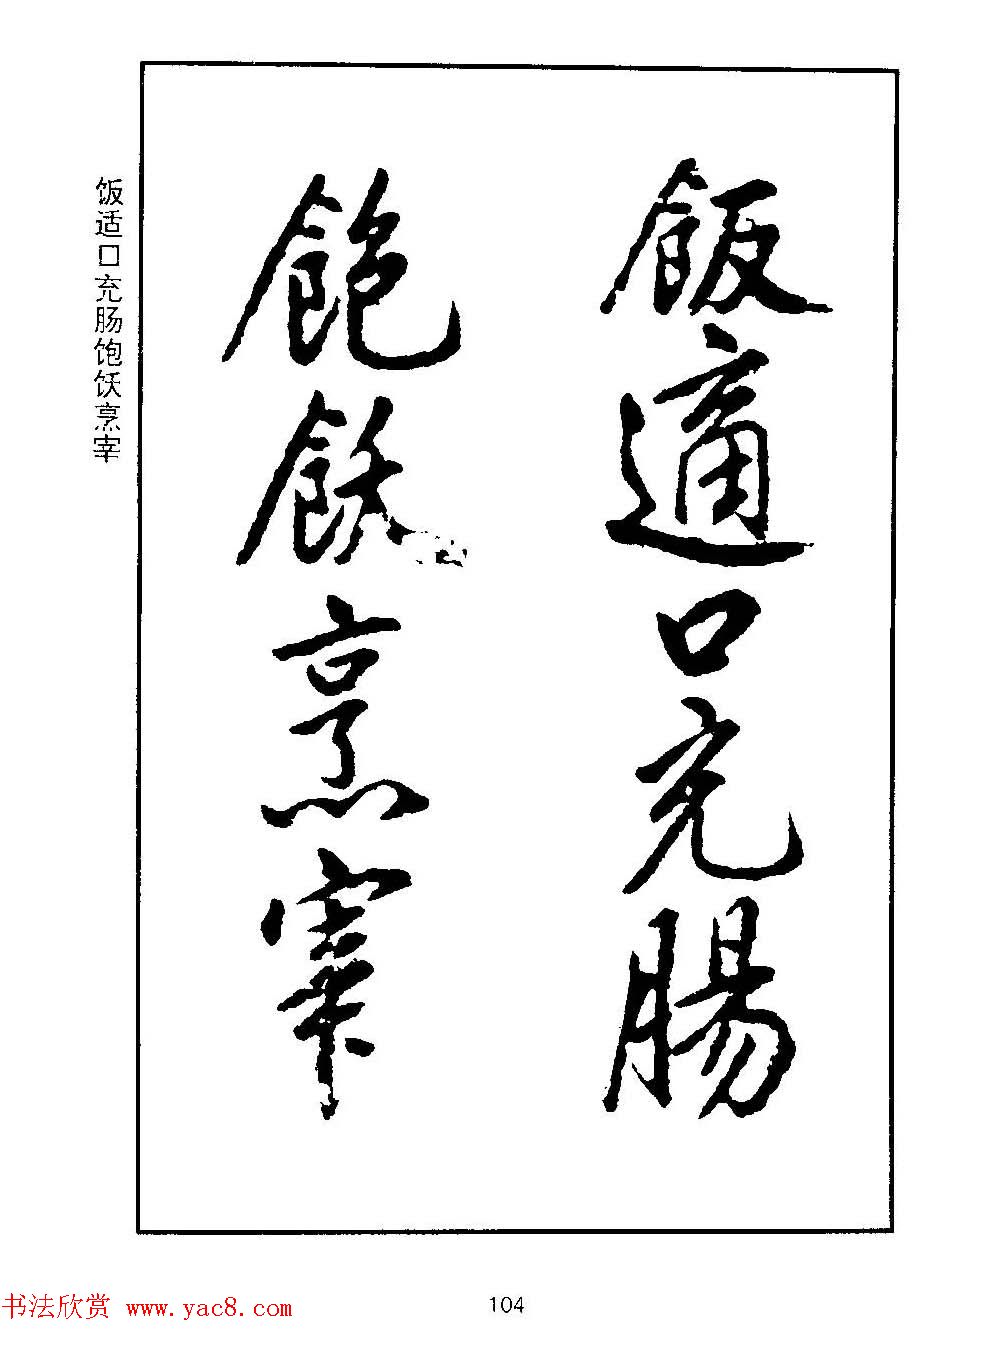 飯適口充腸
飽飫烹宰
饭适口充肠饱饫烹宰
书法欣赏 www.yac8.com
104